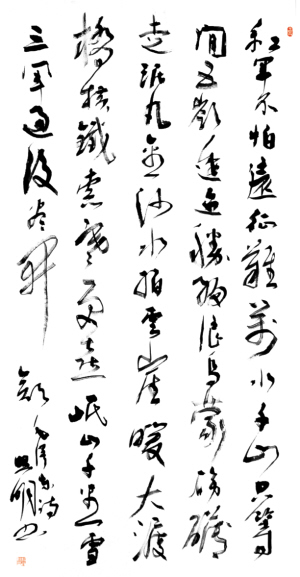 紅軍不怕遠征難萬水千山只等
间五嶺逶迤騰細浪烏蒙磅礴
走泥丸金沙水拍雲崖暖大渡
橋横鐵索寒更喜岷山千里雪
三军過後尽开
颜 毛泽东诗
明书